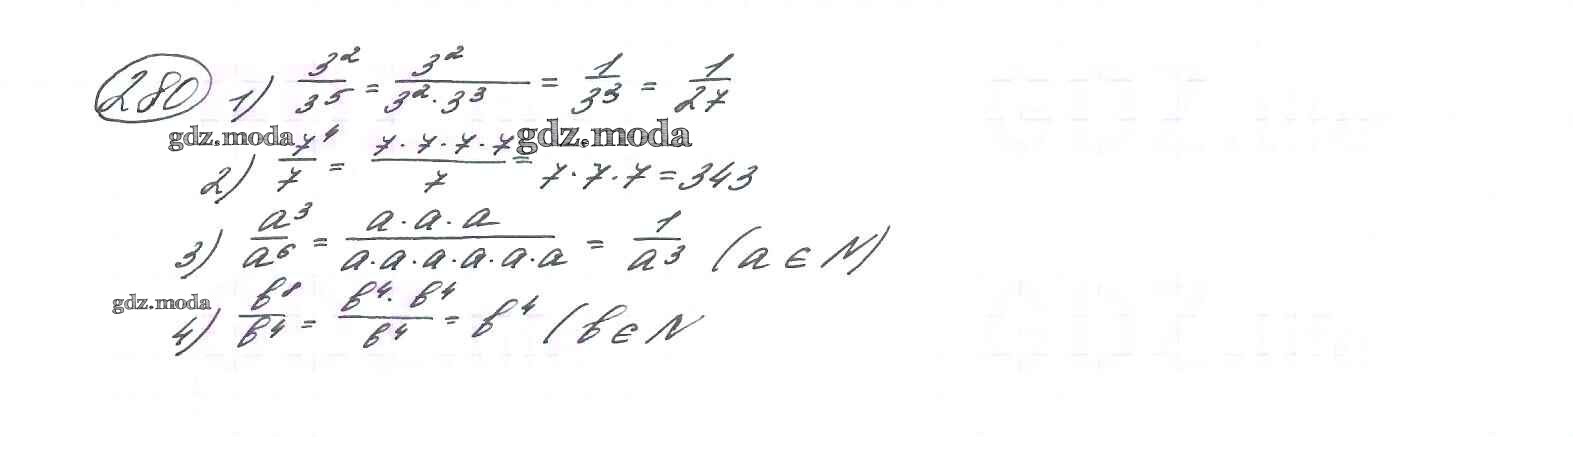 280 1) 3²/3⁵ = 3²/(3²·3³) = 1/3³ = 1/27
gdz.moda gdz.moda
2) 7⁴/7 = (7·7·7·7)/7 = 7·7·7 = 343
3) a³/a⁶ = (a·a·a)/(a·a·a·a·a·a) = 1/a³ (a ∈ N)
gdz.moda
4) b⁸/b⁴ = (b⁴·b⁴)/b⁴ = b⁴ (b ∈ N